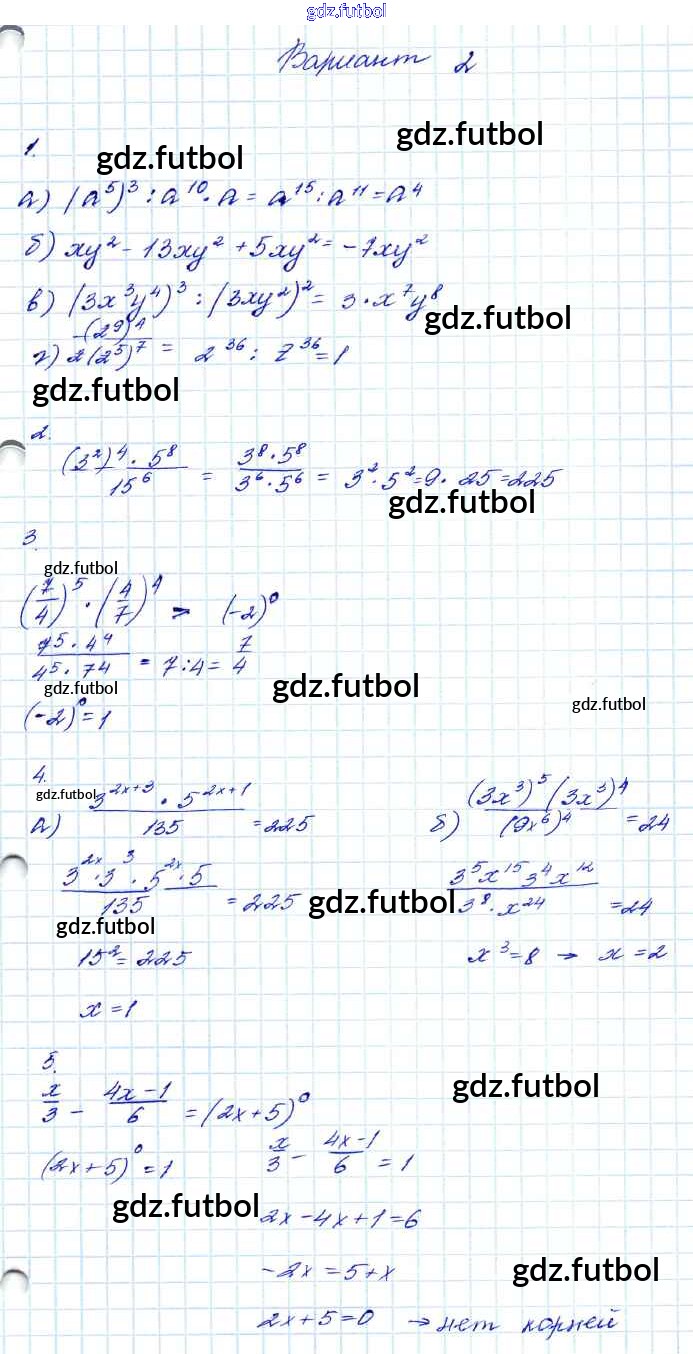 gdz.futbol
Вариант 2
gdz.futbol
1.
gdz.futbol
а) (a⁵)³ : a¹⁰ · a = a¹⁵ : a¹¹ = a⁴
б) xy² - 13xy² + 5xy² = -7xy²
в) (3x³y⁴)³ : (3xy²)² = 3 · x⁷y⁸
gdz.futbol
г) (2⁹)⁴ / 2(2⁵)⁷ = 2³⁶ : 2³⁶ = 1
gdz.futbol
2.
(3²)⁴ · 5⁸ / 15⁶ = 3⁸ · 5⁸ / 3⁶ · 5⁶ = 3² · 5² = 9 · 25 = 225
gdz.futbol
3
gdz.futbol
(7/4)⁵ · (4/7)⁴ > (-2)⁰
7⁵ · 4⁴ / 4⁵ · 7⁴ = 7 : 4 = 7/4
gdz.futbol
gdz.futbol
gdz.futbol
(-2)⁰ = 1
4.
gdz.futbol
а) 3²ˣ⁺³ · 5²ˣ⁺¹ / 135 = 225
б) (3x³)⁵ (3x³)⁴ / (9x⁶)⁴ = 24
3²ˣ · 3³ · 5²ˣ · 5 / 135 = 225
3⁵x¹⁵3⁴x¹² / 3⁸ · x²⁴ = 24
gdz.futbol
gdz.futbol
15² = 225
x³ = 8 → x = 2
x = 1
5.
gdz.futbol
x/3 - 4x-1/6 = (2x+5)⁰
(2x+5)⁰ = 1
x/3 - 4x-1/6 = 1
gdz.futbol
2x - 4x + 1 = 6
-2x = 5 + x
gdz.futbol
2x + 5 = 0 → нет корней